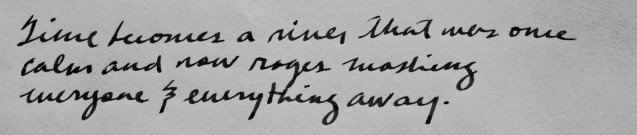 Time becomes a river that was once
calm and now rages washing
everyone & everything away.